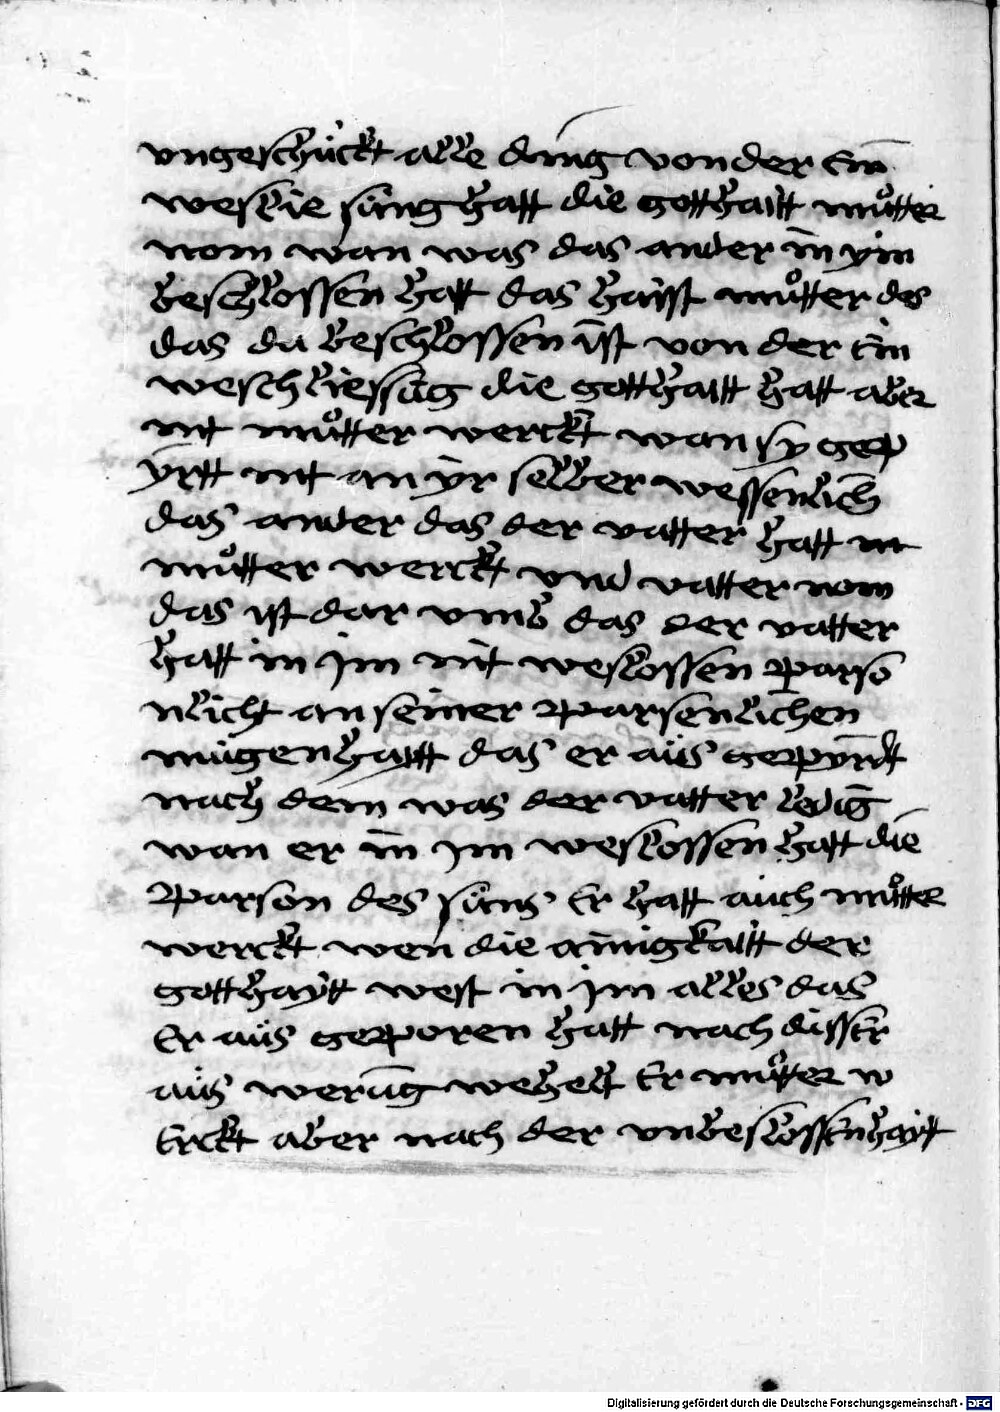 vngeschückt alle ding von der Ein
weslie süng hatt die gotthaitt můtter
nom wan was das ander in yim
beschlossen hatt das haisst můtter des
das da beschlossen ist von der ein
weschliessūg die gotthaitt hatt aber
nit můtter werckt wan sy gep
yrtt nit an yr selber wessenlich
das ander das der vatter hatt in
můtter werckt vnd vatter nom
das ist dar vmb das der vatter
hatt in jm nit weslossen parso
nlicht an seiner parsenlichen
mügenhaytt das er aüs gepyrdt
nach dem was der vatter ledig
wan er in jm weslossen hatt die
parson des süns Er hatt aüch můtter
werckt wen die ainigkaitt der
gotthaytt west in jm alles das
Er aüs geporen hatt nach disser
aüs werūg wehelt Er můtter w
Erckt aber nach der vnbeslossenhaytt
Digitalisierung gefördert durch die Deutsche Forschungsgemeinschaft - DFG